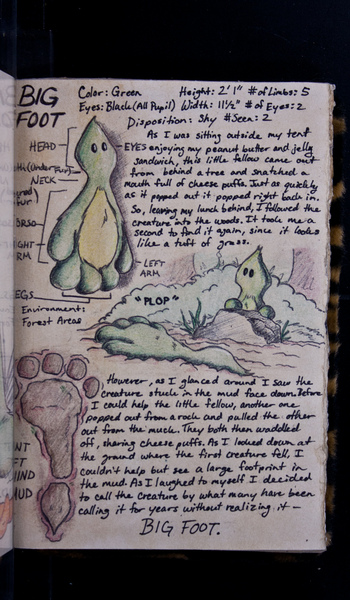 BIG FOOT
Color: Green Height: 2' 1" # of Limbs: 5
Eyes: Black (All Pupil) Width: 11½" # of Eyes: 2
Disposition: Shy # Seen: 2
As I was sitting outside my tent
enjoying my peanut butter and jelly
sandwich, this little fellow came out
from behind a tree and snatched a
mouth full of cheese puffs. Just as quickly
as it popped out it popped right back in.
So, leaving my lunch behind, I followed the
creature into the woods. It took me a
second to find it again, since it looks
like a tuft of grass.
HEAD
EYES
(Under Fur)
NECK
LEFT
ARM
Environment:
Forest Areas
"PLOP"
However, as I glanced around I saw the
creature stuck in the mud face down. Before
I could help the little fellow, another one
popped out from a rock and pulled the other
out from the muck. They both then waddled
off, sharing cheese puffs. As I looked down at
the ground where the first creature fell, I
couldn't help but see a large footprint in
the mud. As I laughed to myself I decided
to call the creature by what many have been
calling it for years without realizing it —
BIG FOOT.
MUD